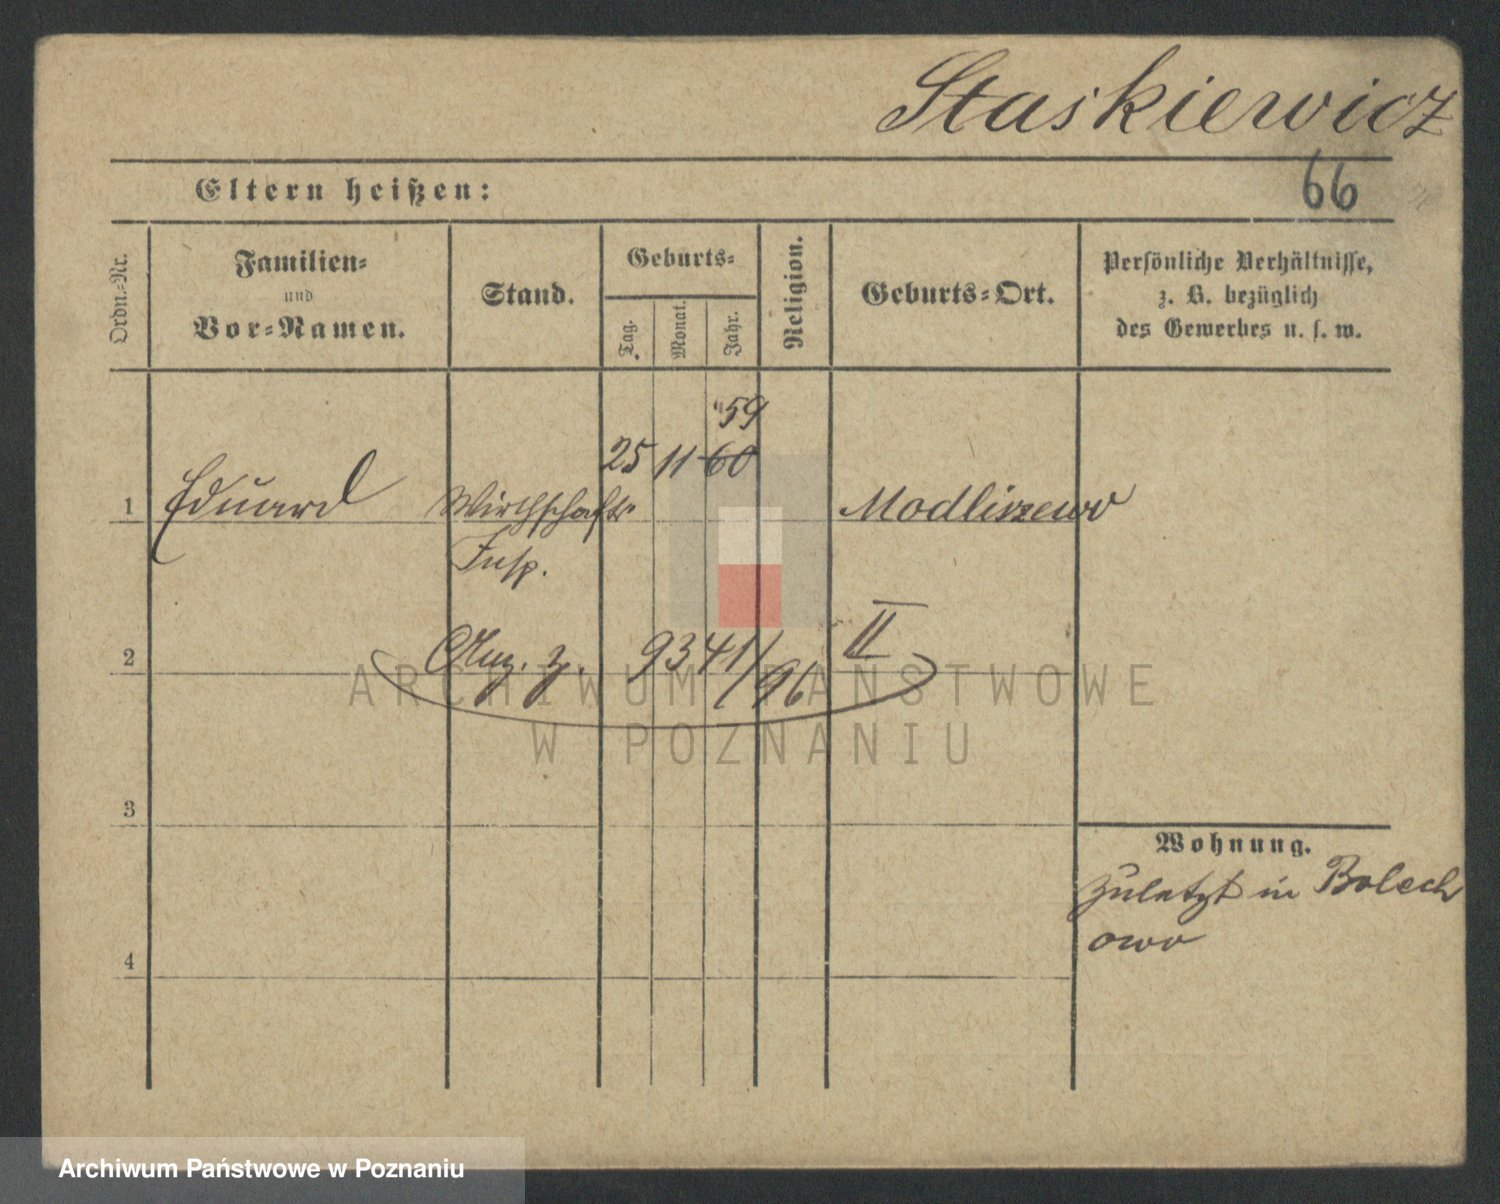 Staskiewicz
Eltern heißen:
66
Ordn.-Nr.
Familien-
und
Vor-Namen.
Stand.
Geburts-
Tag.
Monat.
Jahr.
Religion.
Geburts-Ort.
Persönliche Verhältnisse,
z. B. bezüglich
des Gewerbes u. s. w.
59
1 Eduard Wirthschafts 25 11 60 Modliszewo
Insp.
2 9341/96 II
3
4
Wohnung.
zuletzt in Bolech
owo
ARCHIWUM PAŃSTWOWE
W POZNANIU
Archiwum Państwowe w Poznaniu